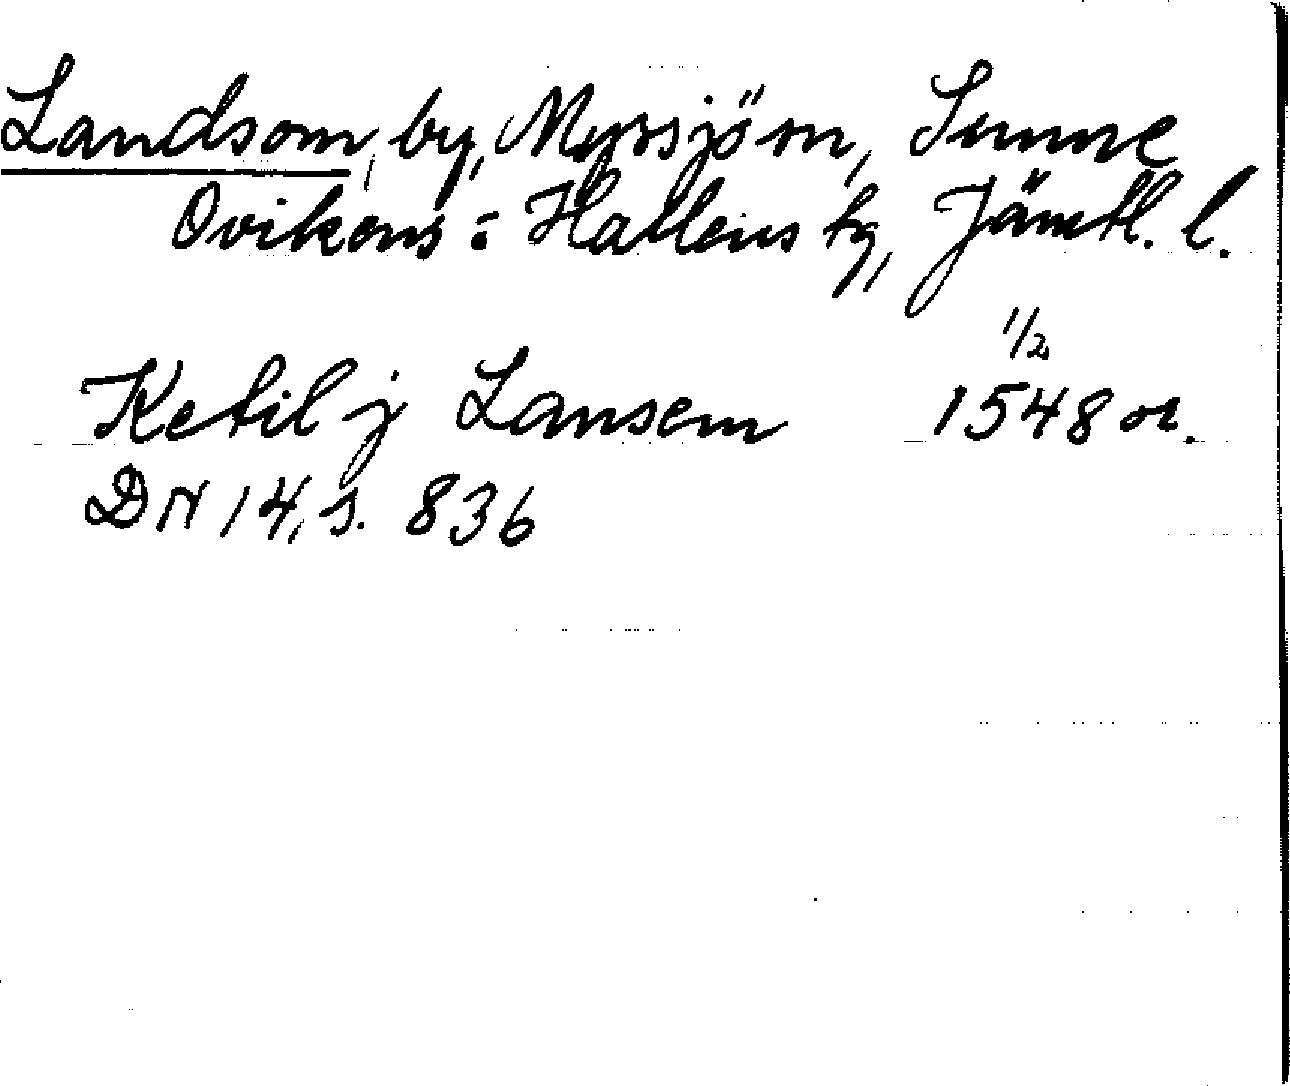 Landsom, by, Myssjö sn, Sunne
Ovikens = Hallens tg, Jämtl. l.
1/2
Ketil j Lansem 1548 or.
DN 14, s. 836